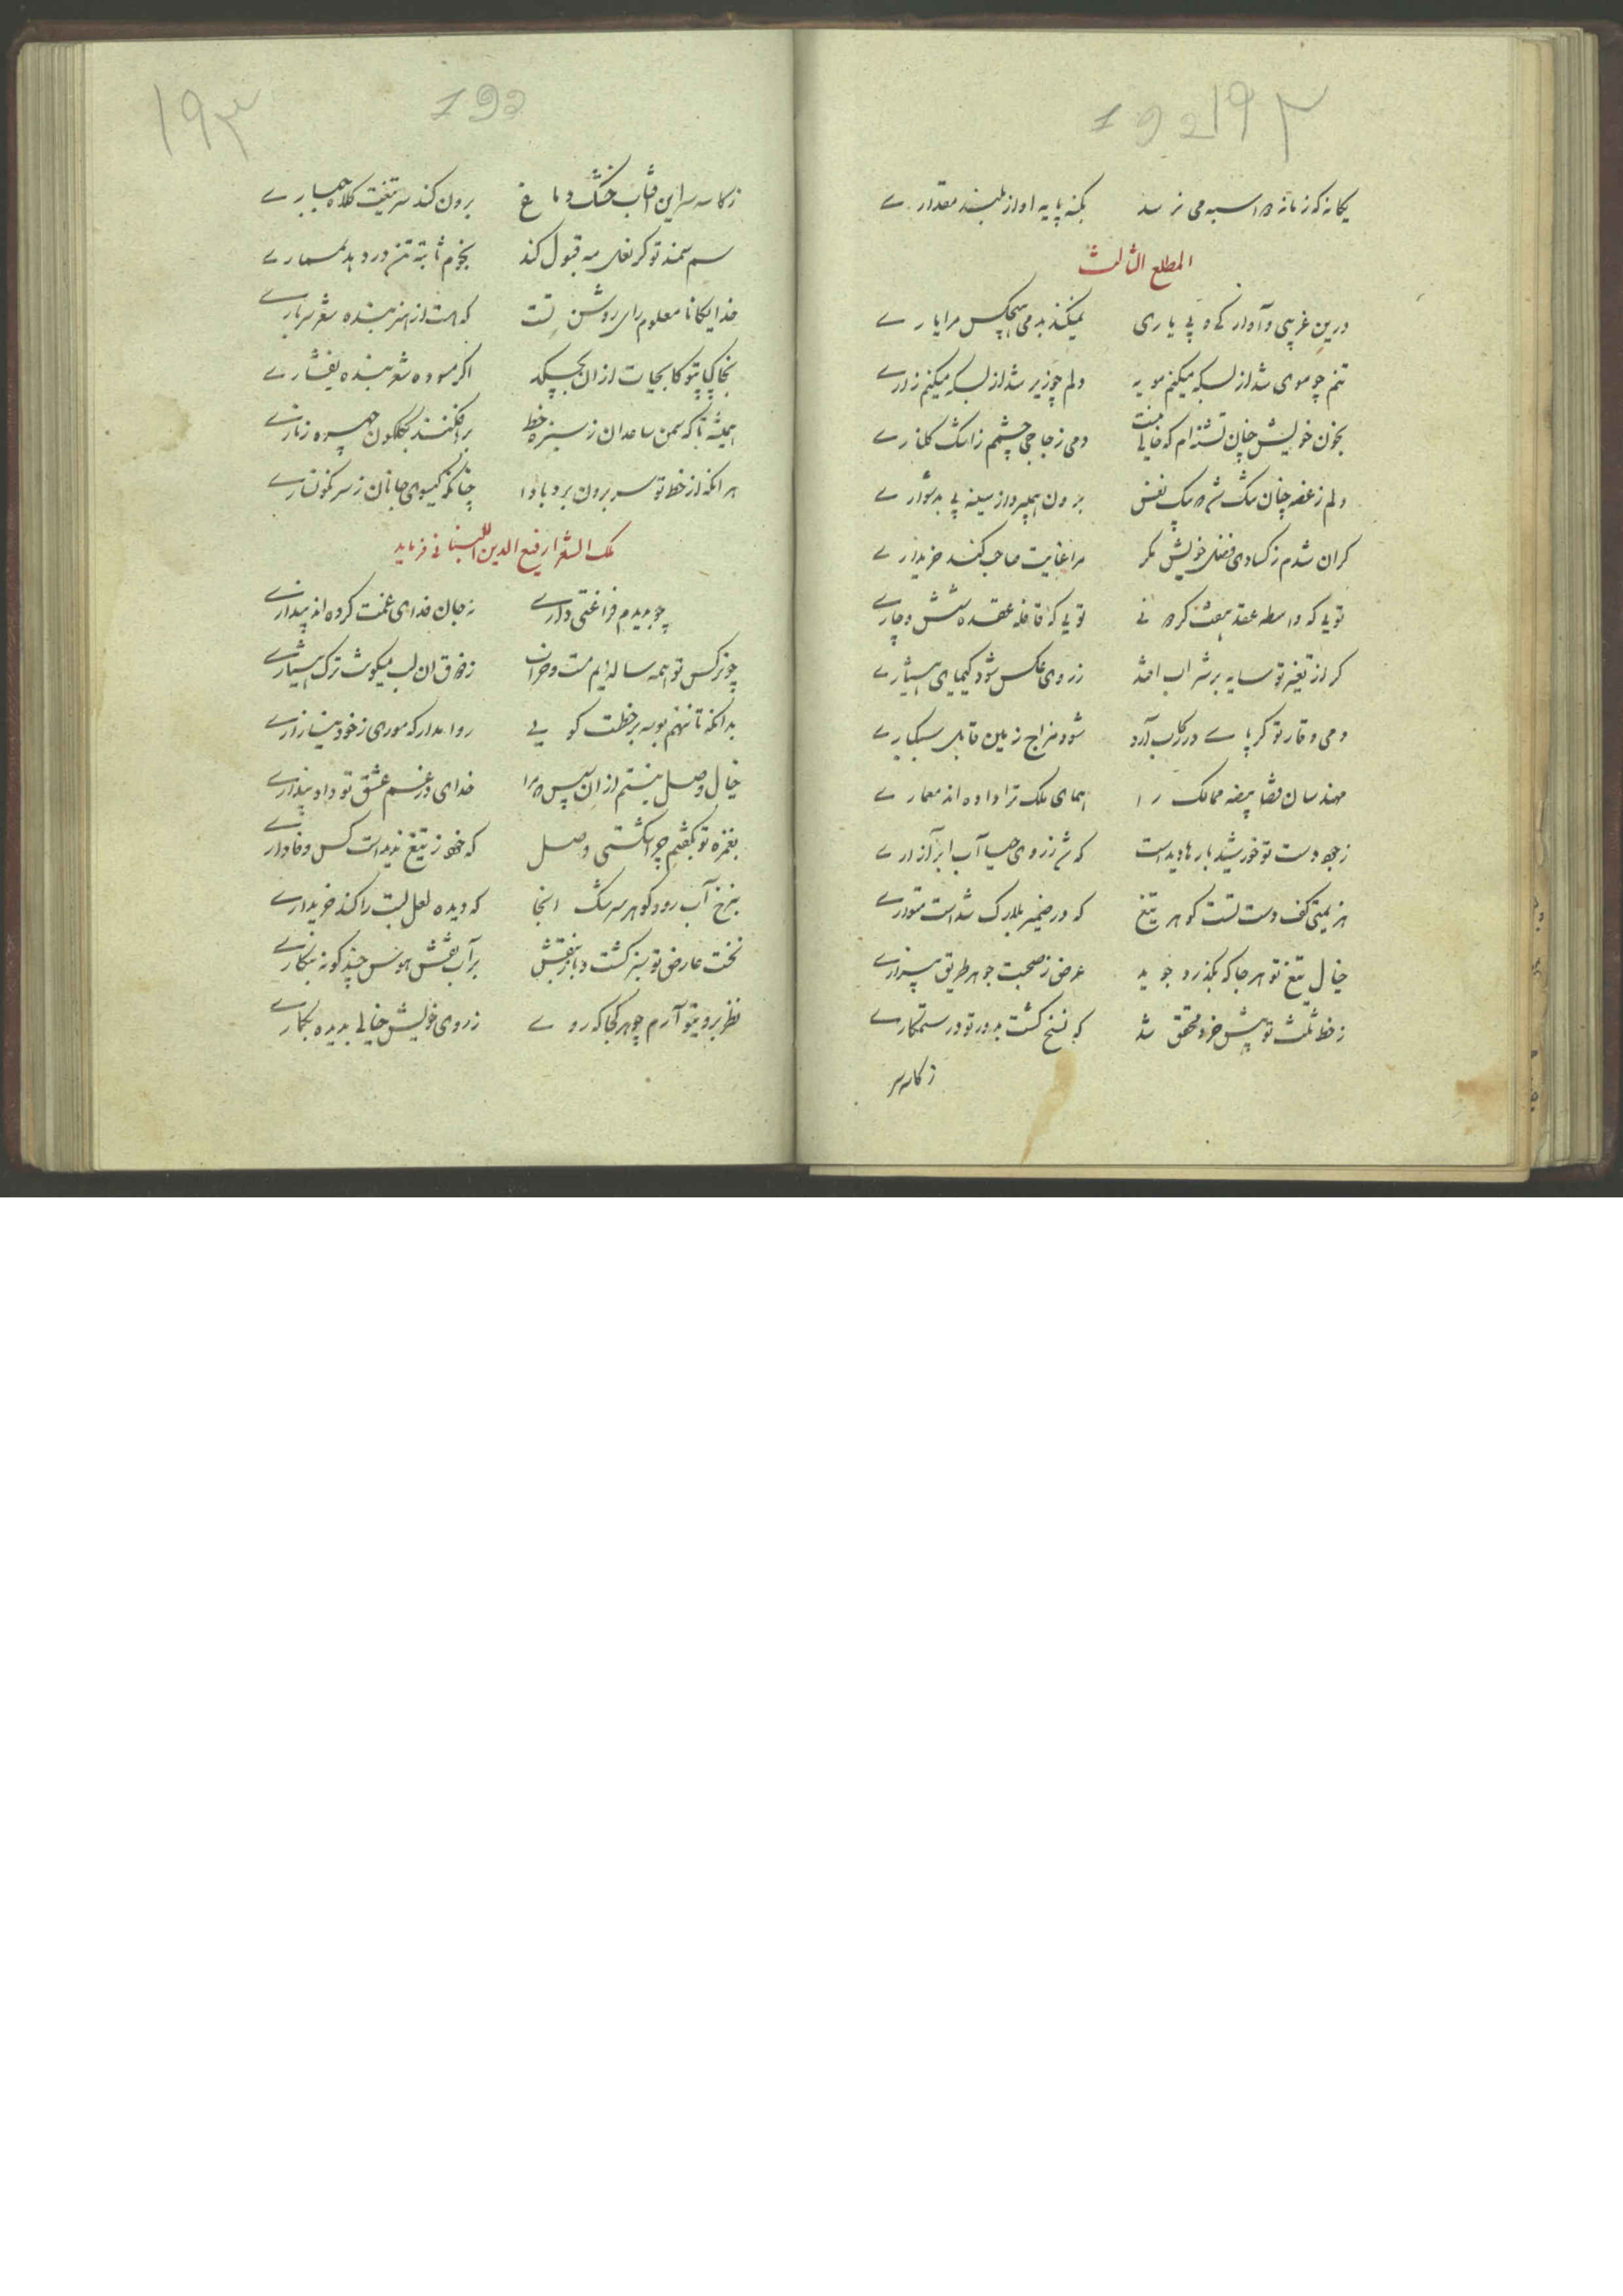 192 ۱۹۲
یکانه که زمانه را سبه می نرسد بکنه پایه او از بلند مقدارے
المطلع الثالث
درین غریبی و آوارکی و بی یاری نمیکند بدمی هیچکس مرا یارے
تنم چو موی شد از بسکه میکنم مویه دلم چو زیر شد از بسکه میکنم زارے
بخون خویش چنان تشنه ام که خالی نیست دمی زجاجی چشمم ز اشک کلنارے
دلم ز غصه چنان تنک شد که یک نفس برون همیرود از سینه بی بدشوارے
کران شدم ز کسادی فضل خویش مکر مرا عنایت صاحب کند خریدارے
تویی که واسطه عقد هفت کردونی تویی که قافله عقده شش و چارے
کر از تغیر تو سایه بر شراب افتد ز روی عکس شود کیمیای هشیارے
دمی وقار تو کر پاے در رکاب آرد شود مزاج زمین قابل سبکبارے
مهندسان قضا بیضه ممالک را همای ملک ترا داده اند معمارے
ز جود دست تو خورشید بارها دیدست که شد ز روی حیا آب ابر آزارے
هم زیمن کف دست تست کوهر تیغ که در ضمیر بلارک شداست متوارے
خیال تیغ تو هر جا که بکذرد جوید عرض ز صحبت جوهر طریق بیزارے
ز خط ثلث تو پیش خرد محقق شد که نسخ کشت بدور تو در ستمکارے
ز کاسه سر
۱۹۳ 193
ز کاسه سر این آفتاب خشک دماغ برون کند سر تیغت کلاه جبارے
سم سمند تو کر نعل مه قبول کند نجوم ثابته تن در دهد بمسمارے
خدایکانا معلوم رای روشن تست که هست از هنر بنده شعر سربارے
بخاکپای تو کاب حیات ازان بچکد اکر مسوده شعر بنده بفشارے
همیشه تا که سمن ساعدان ز سبزه خط برافکنند بکلکون چهره زنارے
هر انکه از خط تو سر برون برد بادا چنانکه کیسوی جانان ز سر نکونسارے
ملک الشعرا رفیع الدین اللبنانی فرماید
چو دیدم فراغتی دارے ز جان فدای غمت کرده اند پندارے
چو نرکس تو همه ساله ایم مست و خراب ز ذوق ان لب میکونت ترک هشیارے
بدانکه تا ننهم بوسه بر خطت کویی روا مدار که موری ز خود بیازارے
خیال وصل نبستم ازان سپس که مرا خدای در غم عشق تو داد پندارے
بغمزه تو بکفتم چرا بکشتی وصل که خود ز تیغ ندیداست کس وفادارے
بنرخ آب رود کوهر سرشک انجا که دیده لعل لبت را کند خریدارے
نخست عارض تو سبز کشت و باز بنفش بر آب نقش هوس چند کونه بنکارے
نظر بروی تو آرم چو هر کجا که روے ز روی خویش خیالی بدیده بکمارے